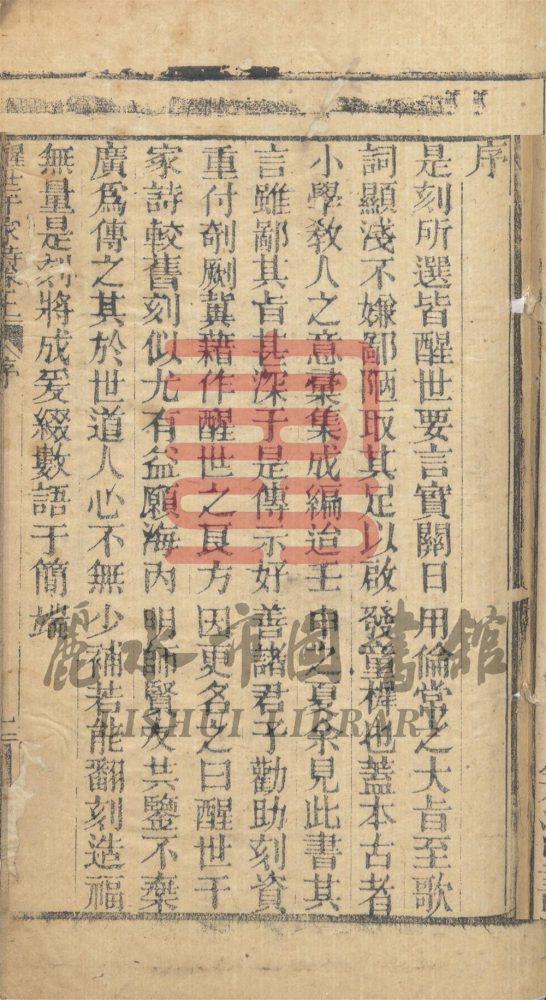 序
是刻所選皆醒世要言實關日用倫常之大旨至歌
詞顯淺不嫌鄙陋取其足以啟發童穉也蓋本古者
小學教人之意彙集成編迨壬申之夏余見此書其
言雖鄙其旨甚深于是傳示好善諸君子勸助刻資
重付剞劂冀藉作醒世之良方因更名之曰醒世千
家詩較舊刻似尤有益願海內明師賢友共鑒不棄
廣為傳之其於世道人心不無少補若能翻刻造福
無量是刻將成爰綴數語于簡端
醒世千家詩 序
麗水市圖書館
LISHUI LIBRARY